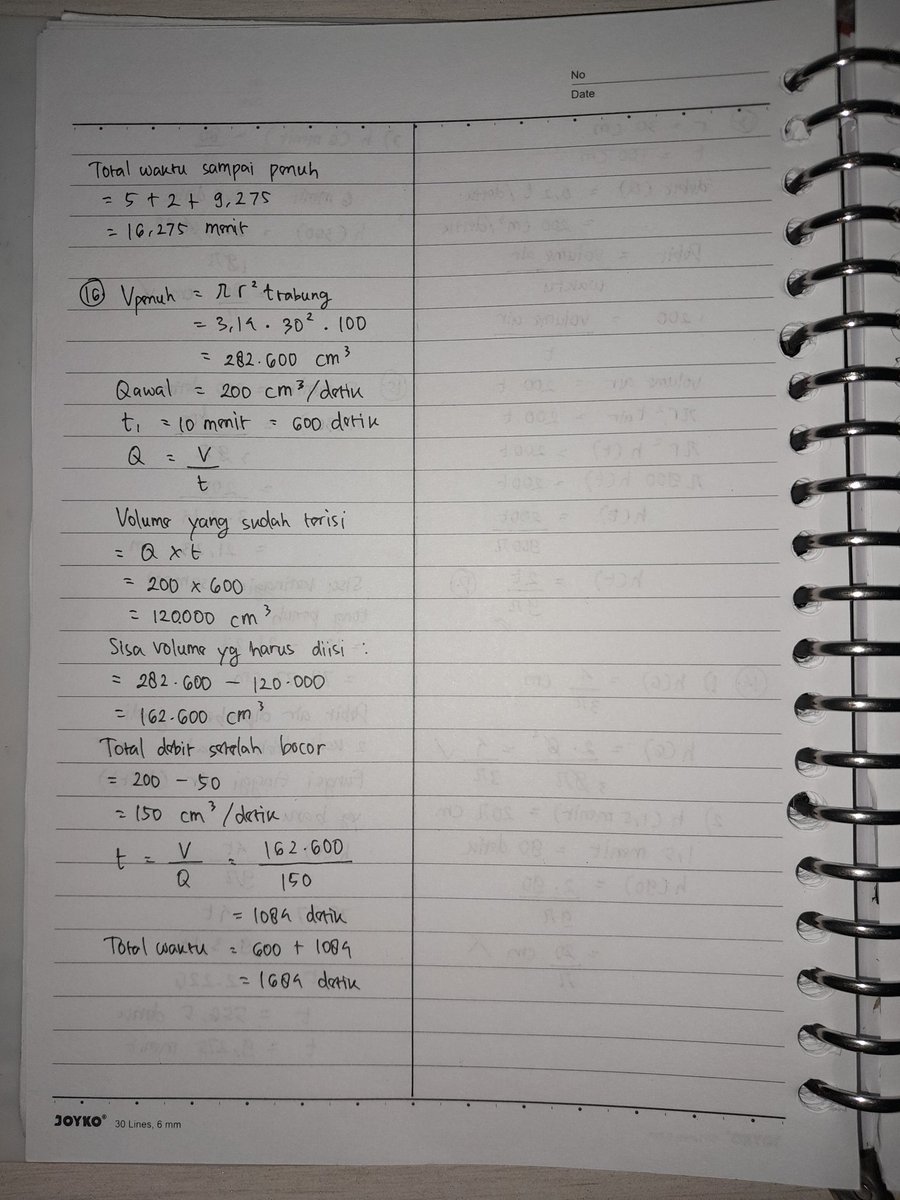 No
Date
Total waktu sampai penuh
= 5 + 2 + 9,275
= 16,275 menit
16 Vpenuh = π r² t tabung
= 3,14 . 30² . 100
= 282.600 cm³
Qawal = 200 cm³/detik
t₁ = 10 menit = 600 detik
Q = V / t
Volume yang sudah terisi
= Q x t
= 200 x 600
= 120000 cm³
Sisa volume yg harus diisi :
= 282.600 - 120.000
= 162.600 cm³
Total debit setelah bocor
= 200 - 50
= 150 cm³/detik
t = V / Q = 162.600 / 150
= 1084 detik
Total waktu = 600 + 1084
= 1684 detik
JOYKO® 30 Lines, 6 mm